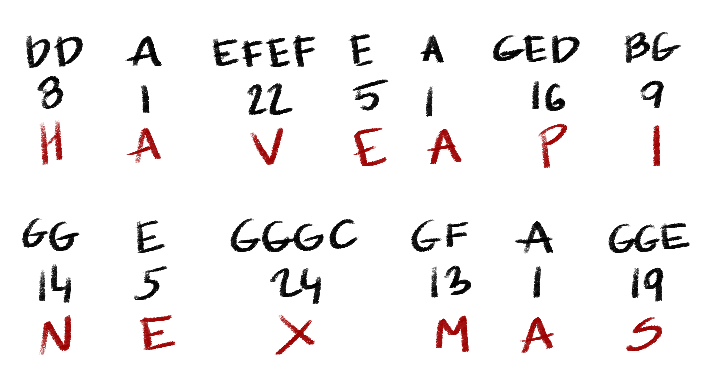 DD A EFEF E A GED BG
8 1 22 5 1 16 9
H A V E A P I
GG E GGGC GF A GGE
14 5 24 13 1 19
N E X M A S